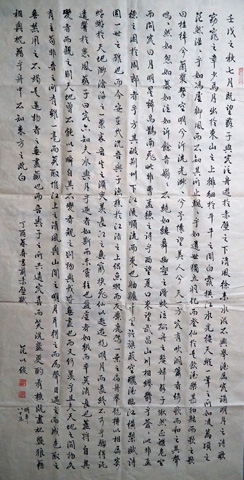 壬戌之秋七月既望蘇子與客泛舟遊於赤壁之下清風徐來水波不興舉酒屬客誦明月之詩歌
窈窕之章少焉月出於東山之上徘徊於斗牛之間白露橫江水光接天縱一葦之所如凌萬頃之
茫然浩浩乎如馮虛御風而不知其所止飄飄乎如遺世獨立羽化而登仙於是飲酒樂甚扣舷而歌之歌
曰桂棹兮蘭槳擊空明兮泝流光渺渺兮予懷望美人兮天一方客有吹洞簫者倚歌而和之其聲
嗚嗚然如怨如慕如泣如訴餘音嫋嫋不絕如縷舞幽壑之潛蛟泣孤舟之嫠婦蘇子愀然正襟危坐
而問客曰何為其然也客曰月明星稀烏鵲南飛此非曹孟德之詩乎西望夏口東望武昌山川相繆鬱乎蒼蒼此非孟
德之困於周郎者乎方其破荊州下江陵順流而東也舳艫千里旌旗蔽空釃酒臨江橫槊賦詩
固一世之雄也而今安在哉況吾與子漁樵於江渚之上侶魚蝦而友麋鹿駕一葉之扁舟舉匏樽以相屬寄
蜉蝣於天地渺滄海之一粟哀吾生之須臾羨長江之無窮挾飛仙以遨遊抱明月而長終知不可乎驟得託
遺響於悲風蘇子曰客亦知夫水與月乎逝者如斯而未嘗往也盈虛者如彼而卒莫消長也蓋將自其
變者而觀之則天地曾不能以一瞬自其不變者而觀之則物與我皆無盡也而又何羨乎且夫天地之間物各
有主苟非吾之所有雖一毫而莫取惟江上之清風與山間之明月耳得之而為聲目遇之而成色取之
無禁用之不竭是造物者之無盡藏也而吾與子之所共適客喜而笑洗盞更酌肴核既盡杯盤狼藉
相與枕藉乎舟中不知東方之既白
丁酉暮春書前赤壁賦 范以